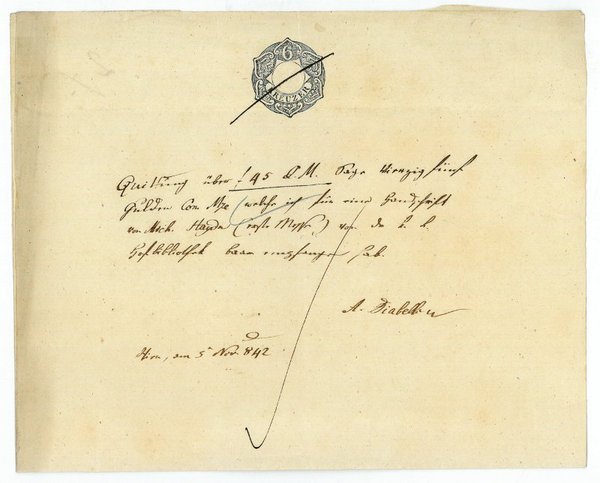 6
KREUZER
Quittung über f 45 C.M. Sage Vierzig fünf
Gulden Con Mze welche ich für eine Handschrift
von Mich. Haydn (erste Messe) von der k. k.
Hofbibliothek baar empfangen hab.
A. Diabelli
Wien, am 5 Nov. 842